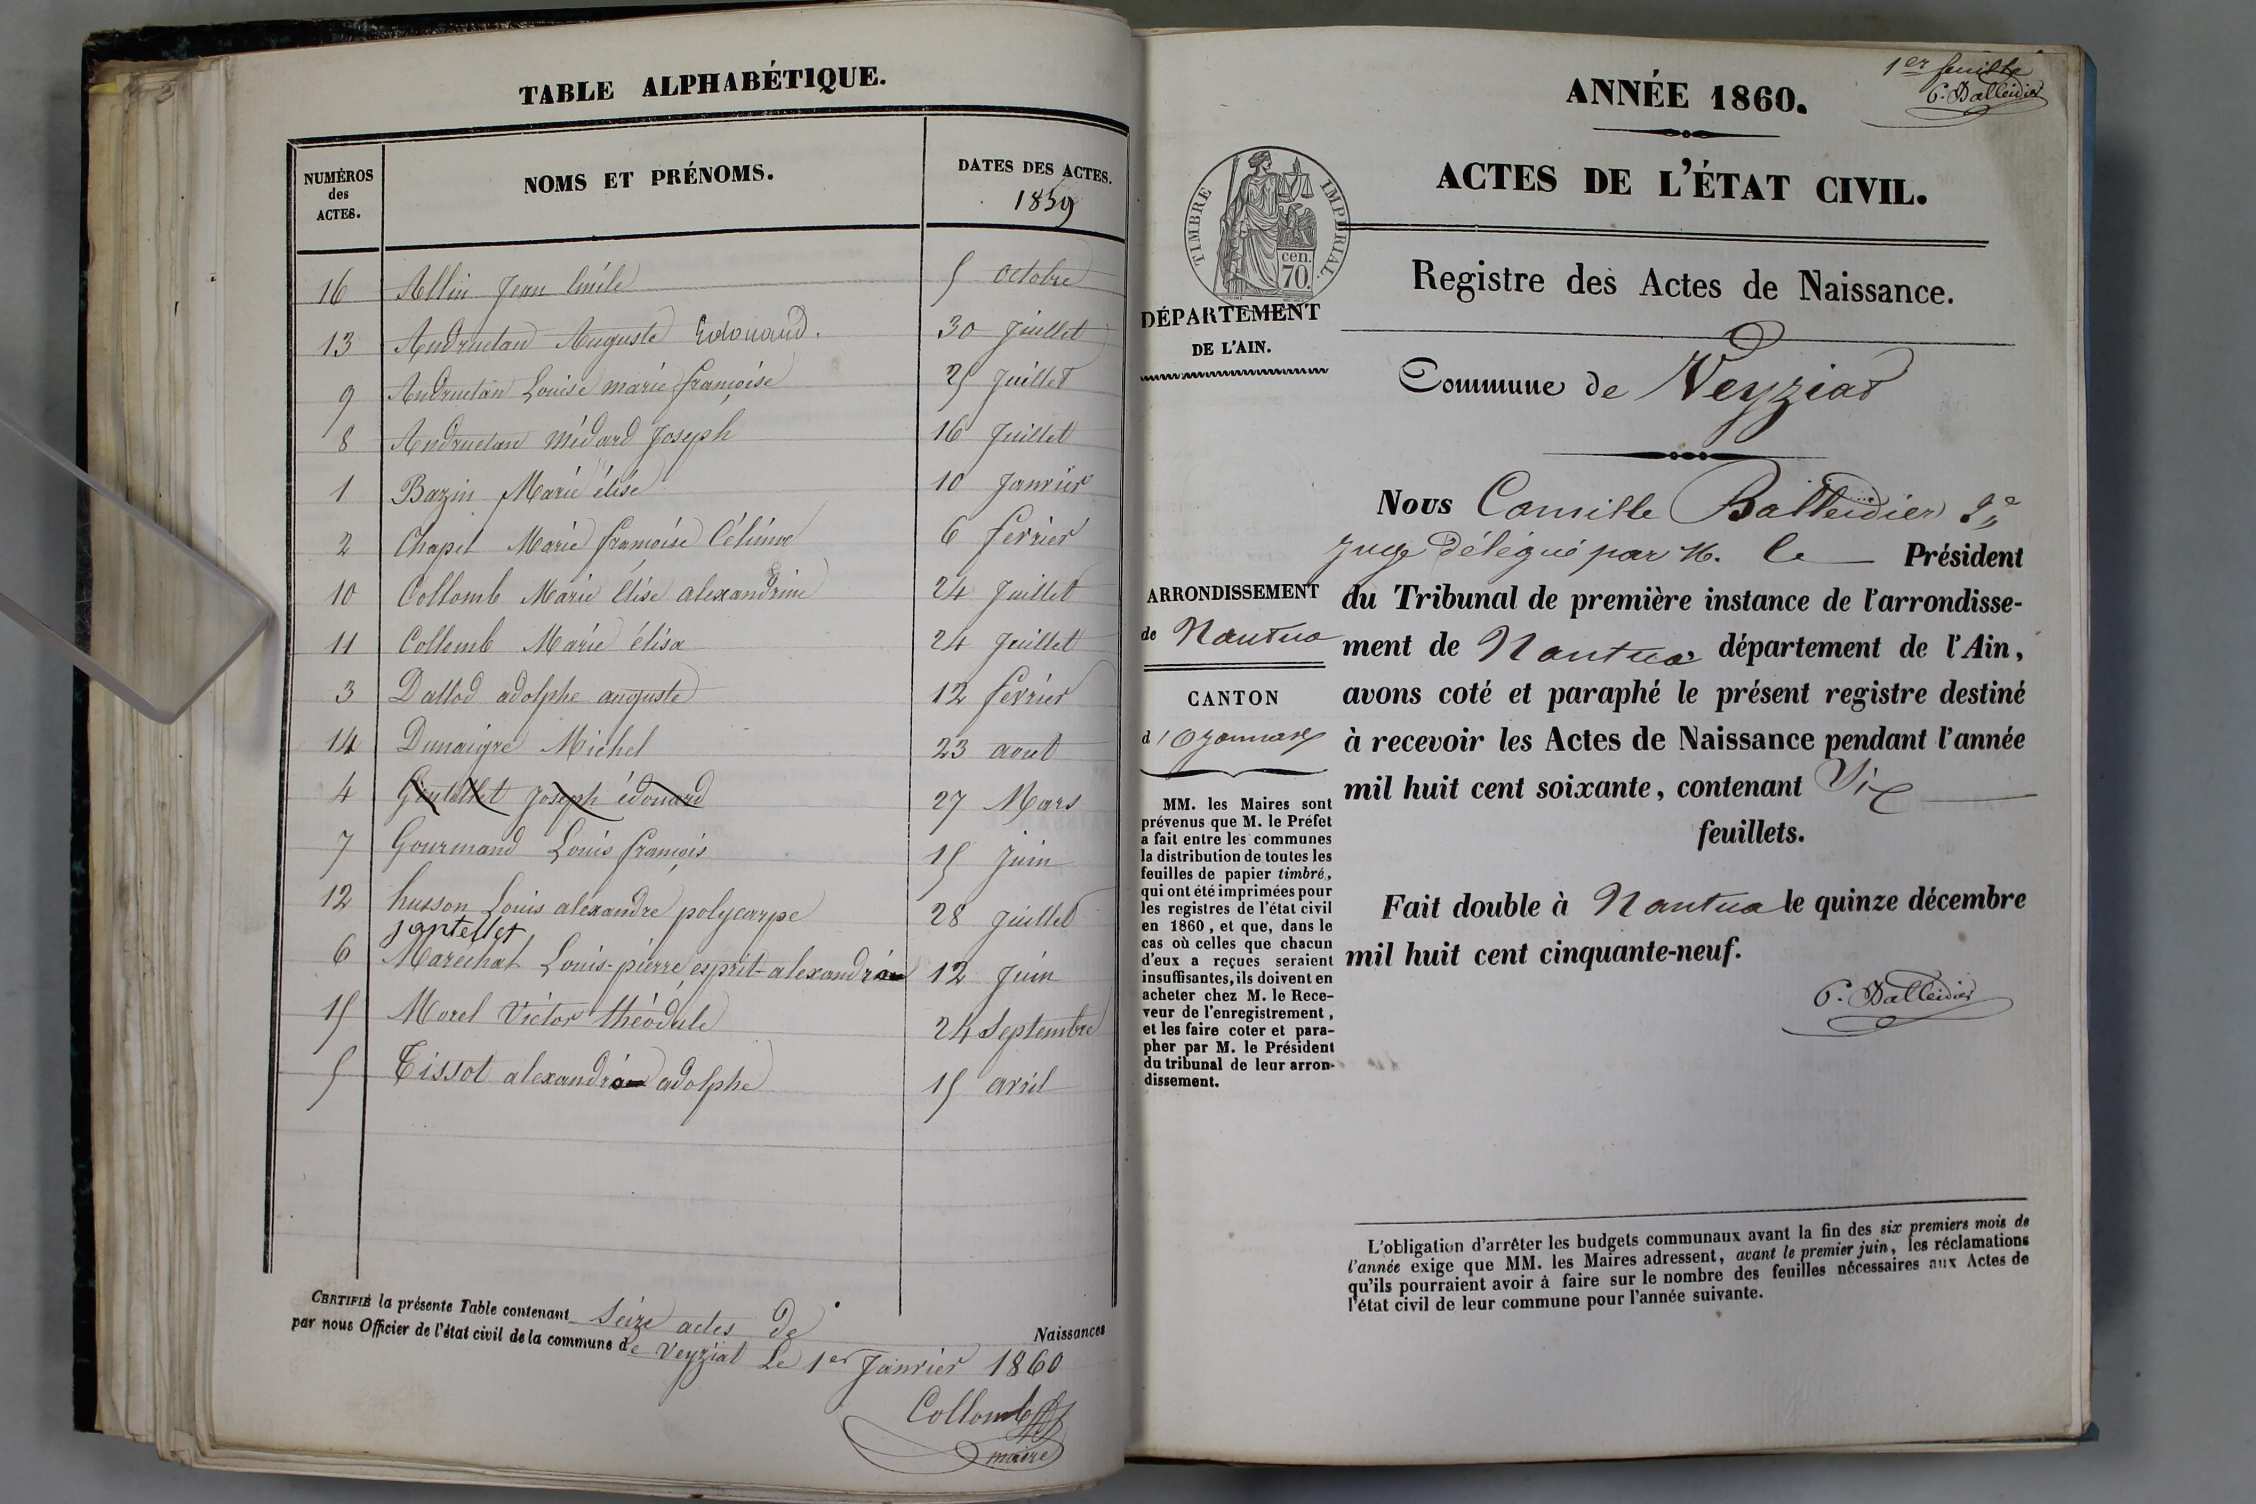 TABLE ALPHABÉTIQUE.
NUMÉROS des ACTES. NOMS ET PRÉNOMS. DATES DES ACTES. 1859
16 Allin Jean émile 5 octobre
13 Andruetan Auguste Edouard. 30 Juillet
9 Andruetan Louise marie françoise 25 Juillet
8 Andruetan médard Joseph 16 Juillet
1 Bazin Marie élise 10 Janvier
2 Chapel Marie françoise Célime 6 février
10 Collomb Marie élise alexandrine 24 Juillet
11 Collomb Marie élisa 24 Juillet
3 Dallod adolphe auguste 12 février
14 Dunaigre Michel 23 aout
4 Gentellet Joseph édouard 27 Mars
7 Gourmand Louis françois 15 Juin
12 husson Louis alexandre polycarpe 28 Juillet
jantellet
6 Maréchal Louis-pierre, esprit-alexandre 12 Juin
15 Morel Victor théodule 24 Septembre
5 Tissot alexandre adolphe 15 avril
CERTIFIÉ la présente Table contenant Seize actes de Naissances
par nous Officier de l'état civil de la commune de Veyziat Le 1er Janvier 1860
Collomb
maire
1er feuillet
C. Balleidier
ANNÉE 1860.
ACTES DE L'ÉTAT CIVIL.
TIMBRE IMPÉRIAL.
cen.
70.
Registre des Actes de Naissance.
DÉPARTEMENT
DE L'AIN.
Commune de Veyziat
Nous Camille Balleidier
Juge délégué par M. le Président
du Tribunal de première instance de l'arrondisse-
ment de Nantua département de l'Ain,
avons coté et paraphé le présent registre destiné
à recevoir les Actes de Naissance pendant l'année
mil huit cent soixante, contenant Six
feuillets.
Fait double à Nantua le quinze décembre
mil huit cent cinquante-neuf.
C. Balleidier
ARRONDISSEMENT
de Nantua
CANTON
d'Oyonnax
MM. les Maires sont
prévenus que M. le Préfet
a fait entre les communes
la distribution de toutes les
feuilles de papier timbré,
qui ont été imprimées pour
les registres de l'état civil
en 1860, et que, dans le
cas où celles que chacun
d'eux a reçues seraient
insuffisantes, ils doivent en
acheter chez M. le Rece-
veur de l'enregistrement,
et les faire coter et para-
pher par M. le Président
du tribunal de leur arron-
dissement.
L'obligation d'arrêter les budgets communaux avant la fin des six premiers mois de
l'année exige que MM. les Maires adressent, avant le premier juin, les réclamations
qu'ils pourraient avoir à faire sur le nombre des feuilles nécessaires aux Actes de
l'état civil de leur commune pour l'année suivante.